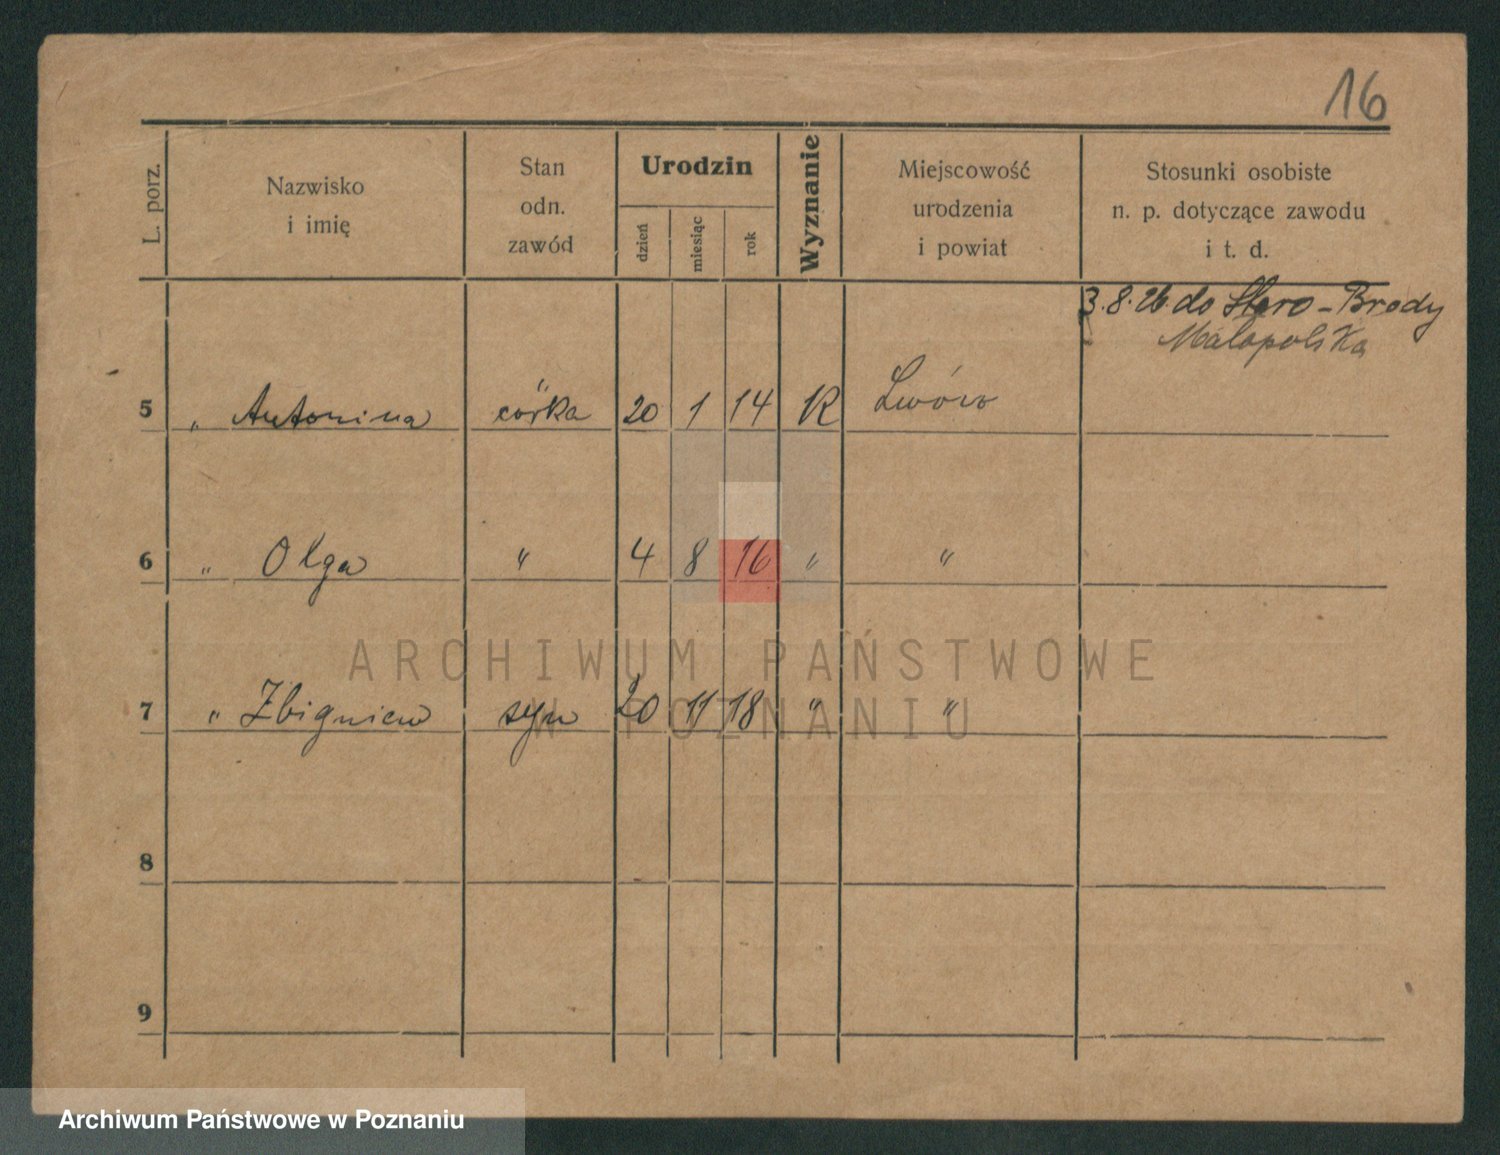 16
L. porz.
Nazwisko
i imię
Stan
odn.
zawód
Urodzin
dzień
miesiąc
rok
Wyznanie
Miejscowość
urodzenia
i powiat
Stosunki osobiste
n. p. dotyczące zawodu
i t. d.
3.8.26 do Staro-Brody
Małopolska
5 " Antonina córka 20 1 14 R Lwów
6 " Olga " 4 8 16 " "
ARCHIWUM PAŃSTWOWE
7 " Zbigniew syn 20 11 18 " "
W POZNANIU
8
9
Archiwum Państwowe w Poznaniu